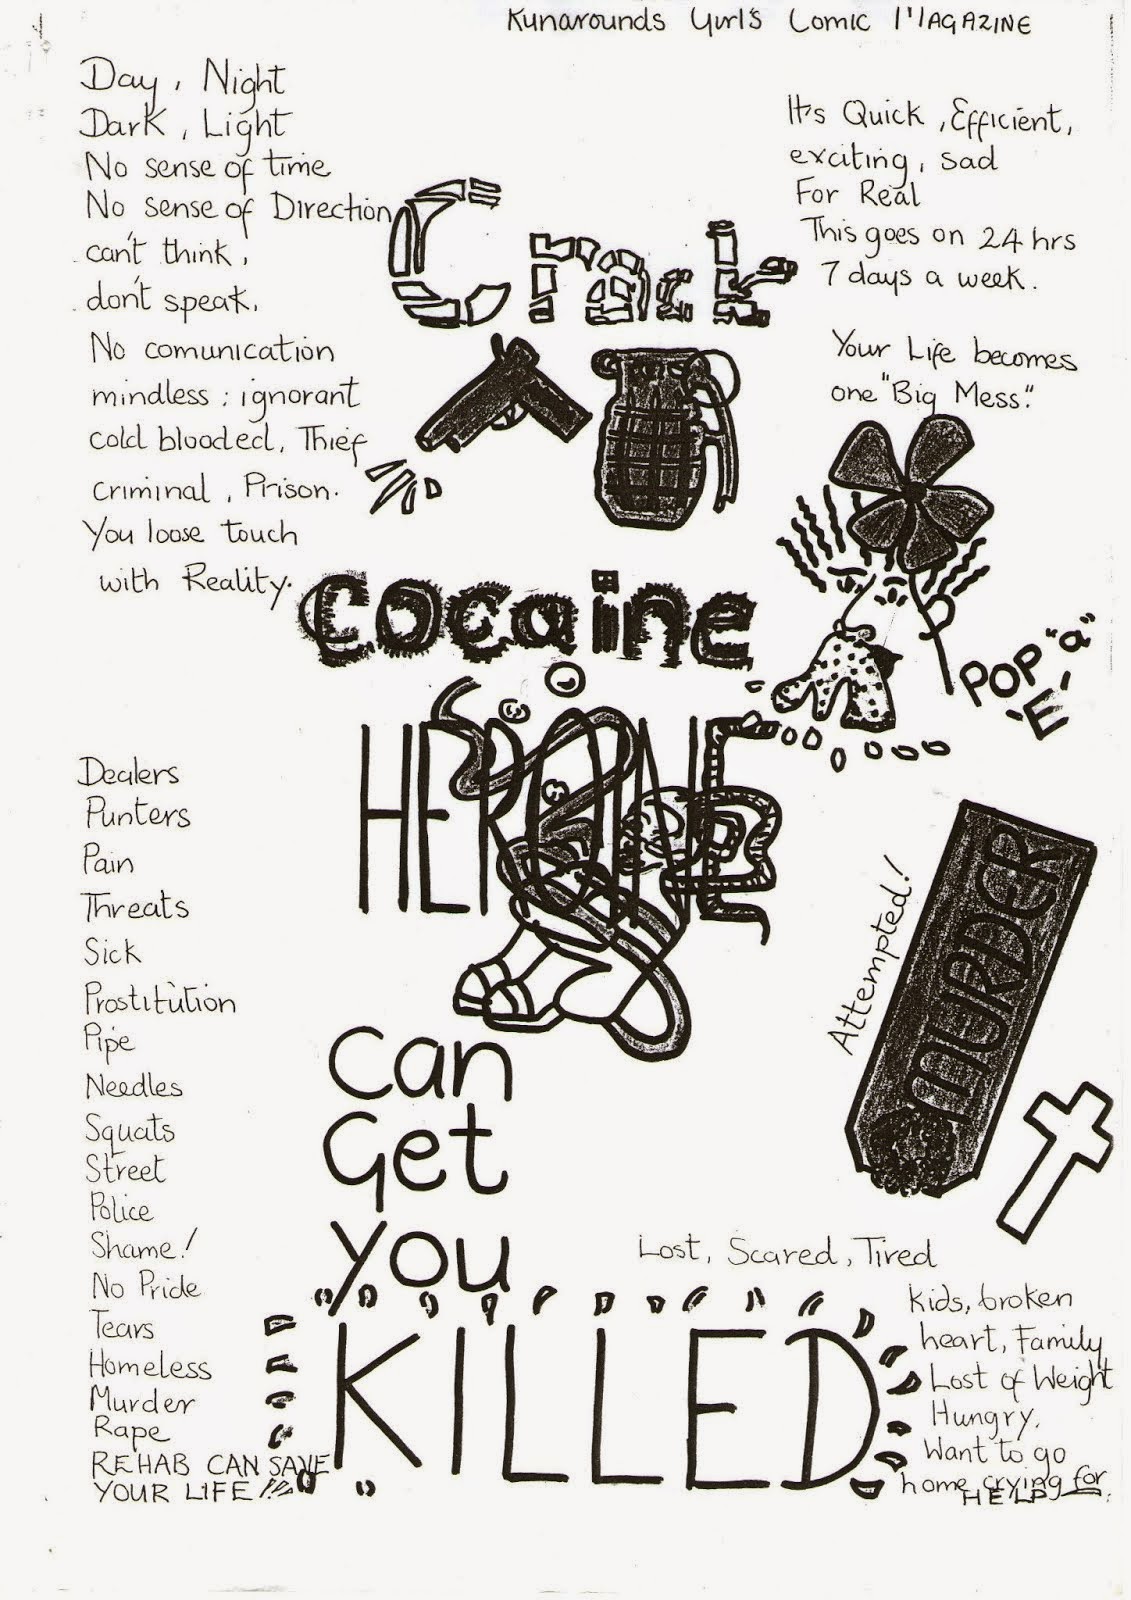 Runarounds Gurl's Comic MAGAZINE
Day, Night
Dark, Light
No sense of time
No sense of Direction
can't think,
don't speak,
No comunication
mindless: ignorant
cold blooded, Thief
criminal, Prison.
You loose touch
with Reality.
It's Quick, Efficient,
exciting, sad
For Real
This goes on 24 hrs
7 days a week.
Your Life becomes
one "Big Mess".
Crack
cocaine
HEROINE
can
Get
you
KILLED
POP "a"
-E-
Attempted!
MURDER
Dealers
Punters
Pain
Threats
Sick
Prostitution
Pipe
Needles
Squats
Street
Police
Shame!
No Pride
Tears
Homeless
Murder
Rape
REHAB CAN SAVE
YOUR LIFE!!!
Lost, Scared, Tired
kids, broken
heart, Family
Lost of Weight
Hungry.
Want to go
home crying for
HELP